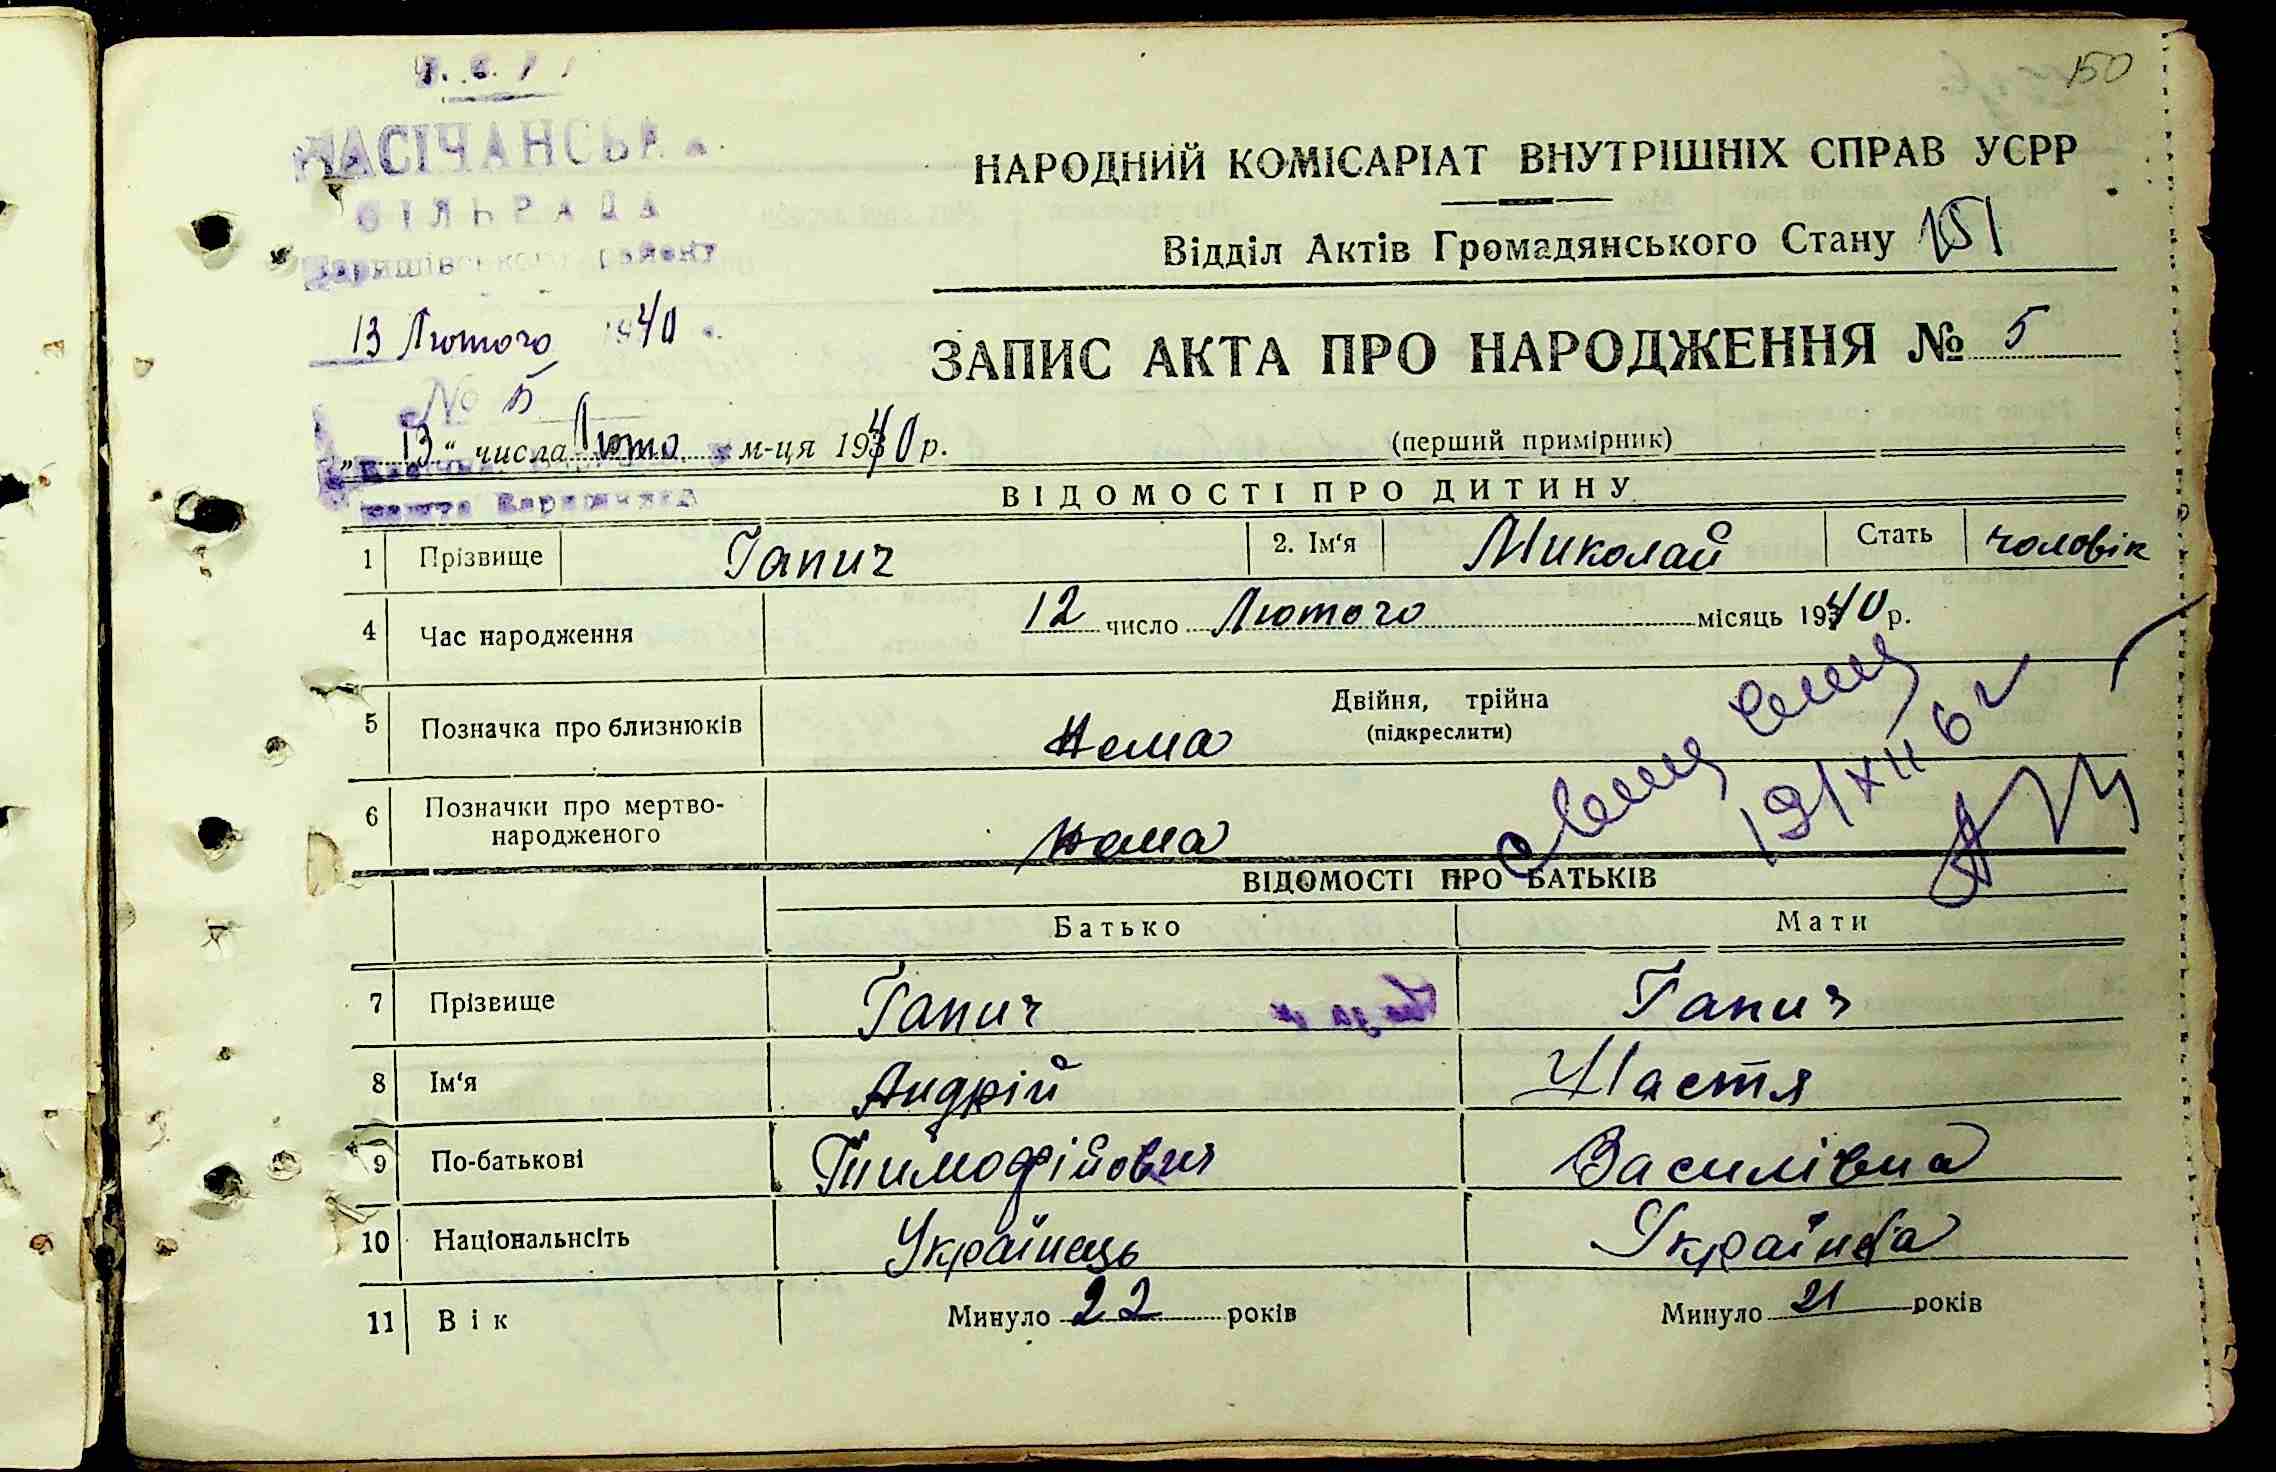 150
У.С.Р.Р.
ПАСІЧАНСЬКА
СІЛЬРАДА
Баришівського району
13 Лютого 1940
№ 5
НАРОДНИЙ КОМІСАРІАТ ВНУТРІШНІХ СПРАВ УСРР
Відділ Актів Громадянського Стану 151
ЗАПИС АКТА ПРО НАРОДЖЕННЯ № 5
„13“ числа Люто м-ця 1940 р.
(перший примірник)
ВІДОМОСТІ ПРО ДИТИНУ
1 Прізвище Гапич 2. Ім‘я Миколай Стать чоловік
4 Час народження 12 число Лютого місяць 1940 р.
5 Позначка про близнюків Нема Двійня, трійна
(підкреслити)
6 Позначки про мертво-
народженого Нема
19/XII 62
ВІДОМОСТІ ПРО БАТЬКІВ
Батько Мати
7 Прізвище Гапич Гапич
8 Ім‘я Андрій Настя
9 По-батькові Тимофійович Василівна
10 Національнсіть Українець Українка
11 Вік Минуло 22 років Минуло 21 років